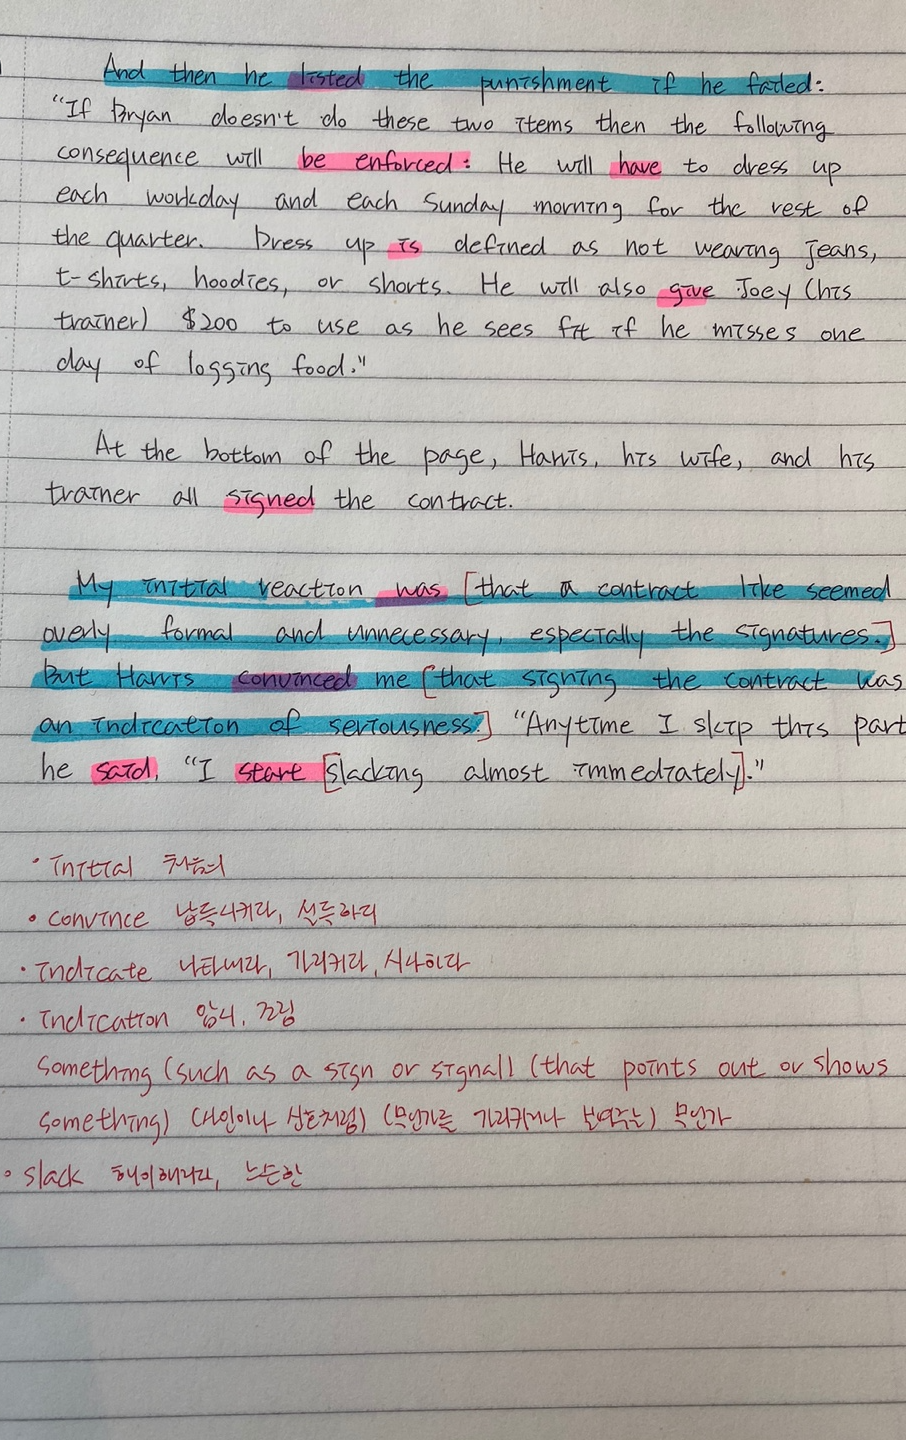 And then he listed the punishment if he failed:
"If Bryan doesn't do these two items then the following
consequence will be enforced: He will have to dress up
each workday and each Sunday morning for the rest of
the quarter. Dress up is defined as not wearing jeans,
t-shirts, hoodies, or shorts. He will also give Joey (his
trainer) $200 to use as he sees fit if he misses one
day of logging food."
At the bottom of the page, Harris, his wife, and his
trainer all signed the contract.
My initial reaction was [that a contract like seemed
overly formal and unnecessary, especially the signatures.]
But Harris convinced me [that signing the contract was
an indication of seriousness.] "Anytime I skip this part
he said, "I start [slacking almost immediately]."
• initial 처음의
• convince 납득시키다, 설득하다
• indicate 나타내다, 가리키다, 시사하다
• indication 암시, 조짐
something (such as a sign or signal) (that points out or shows
something) (사인이나 신호처럼) (무언가를 가리키거나 보여주는) 무언가
• slack 해이해지다, 느슨한